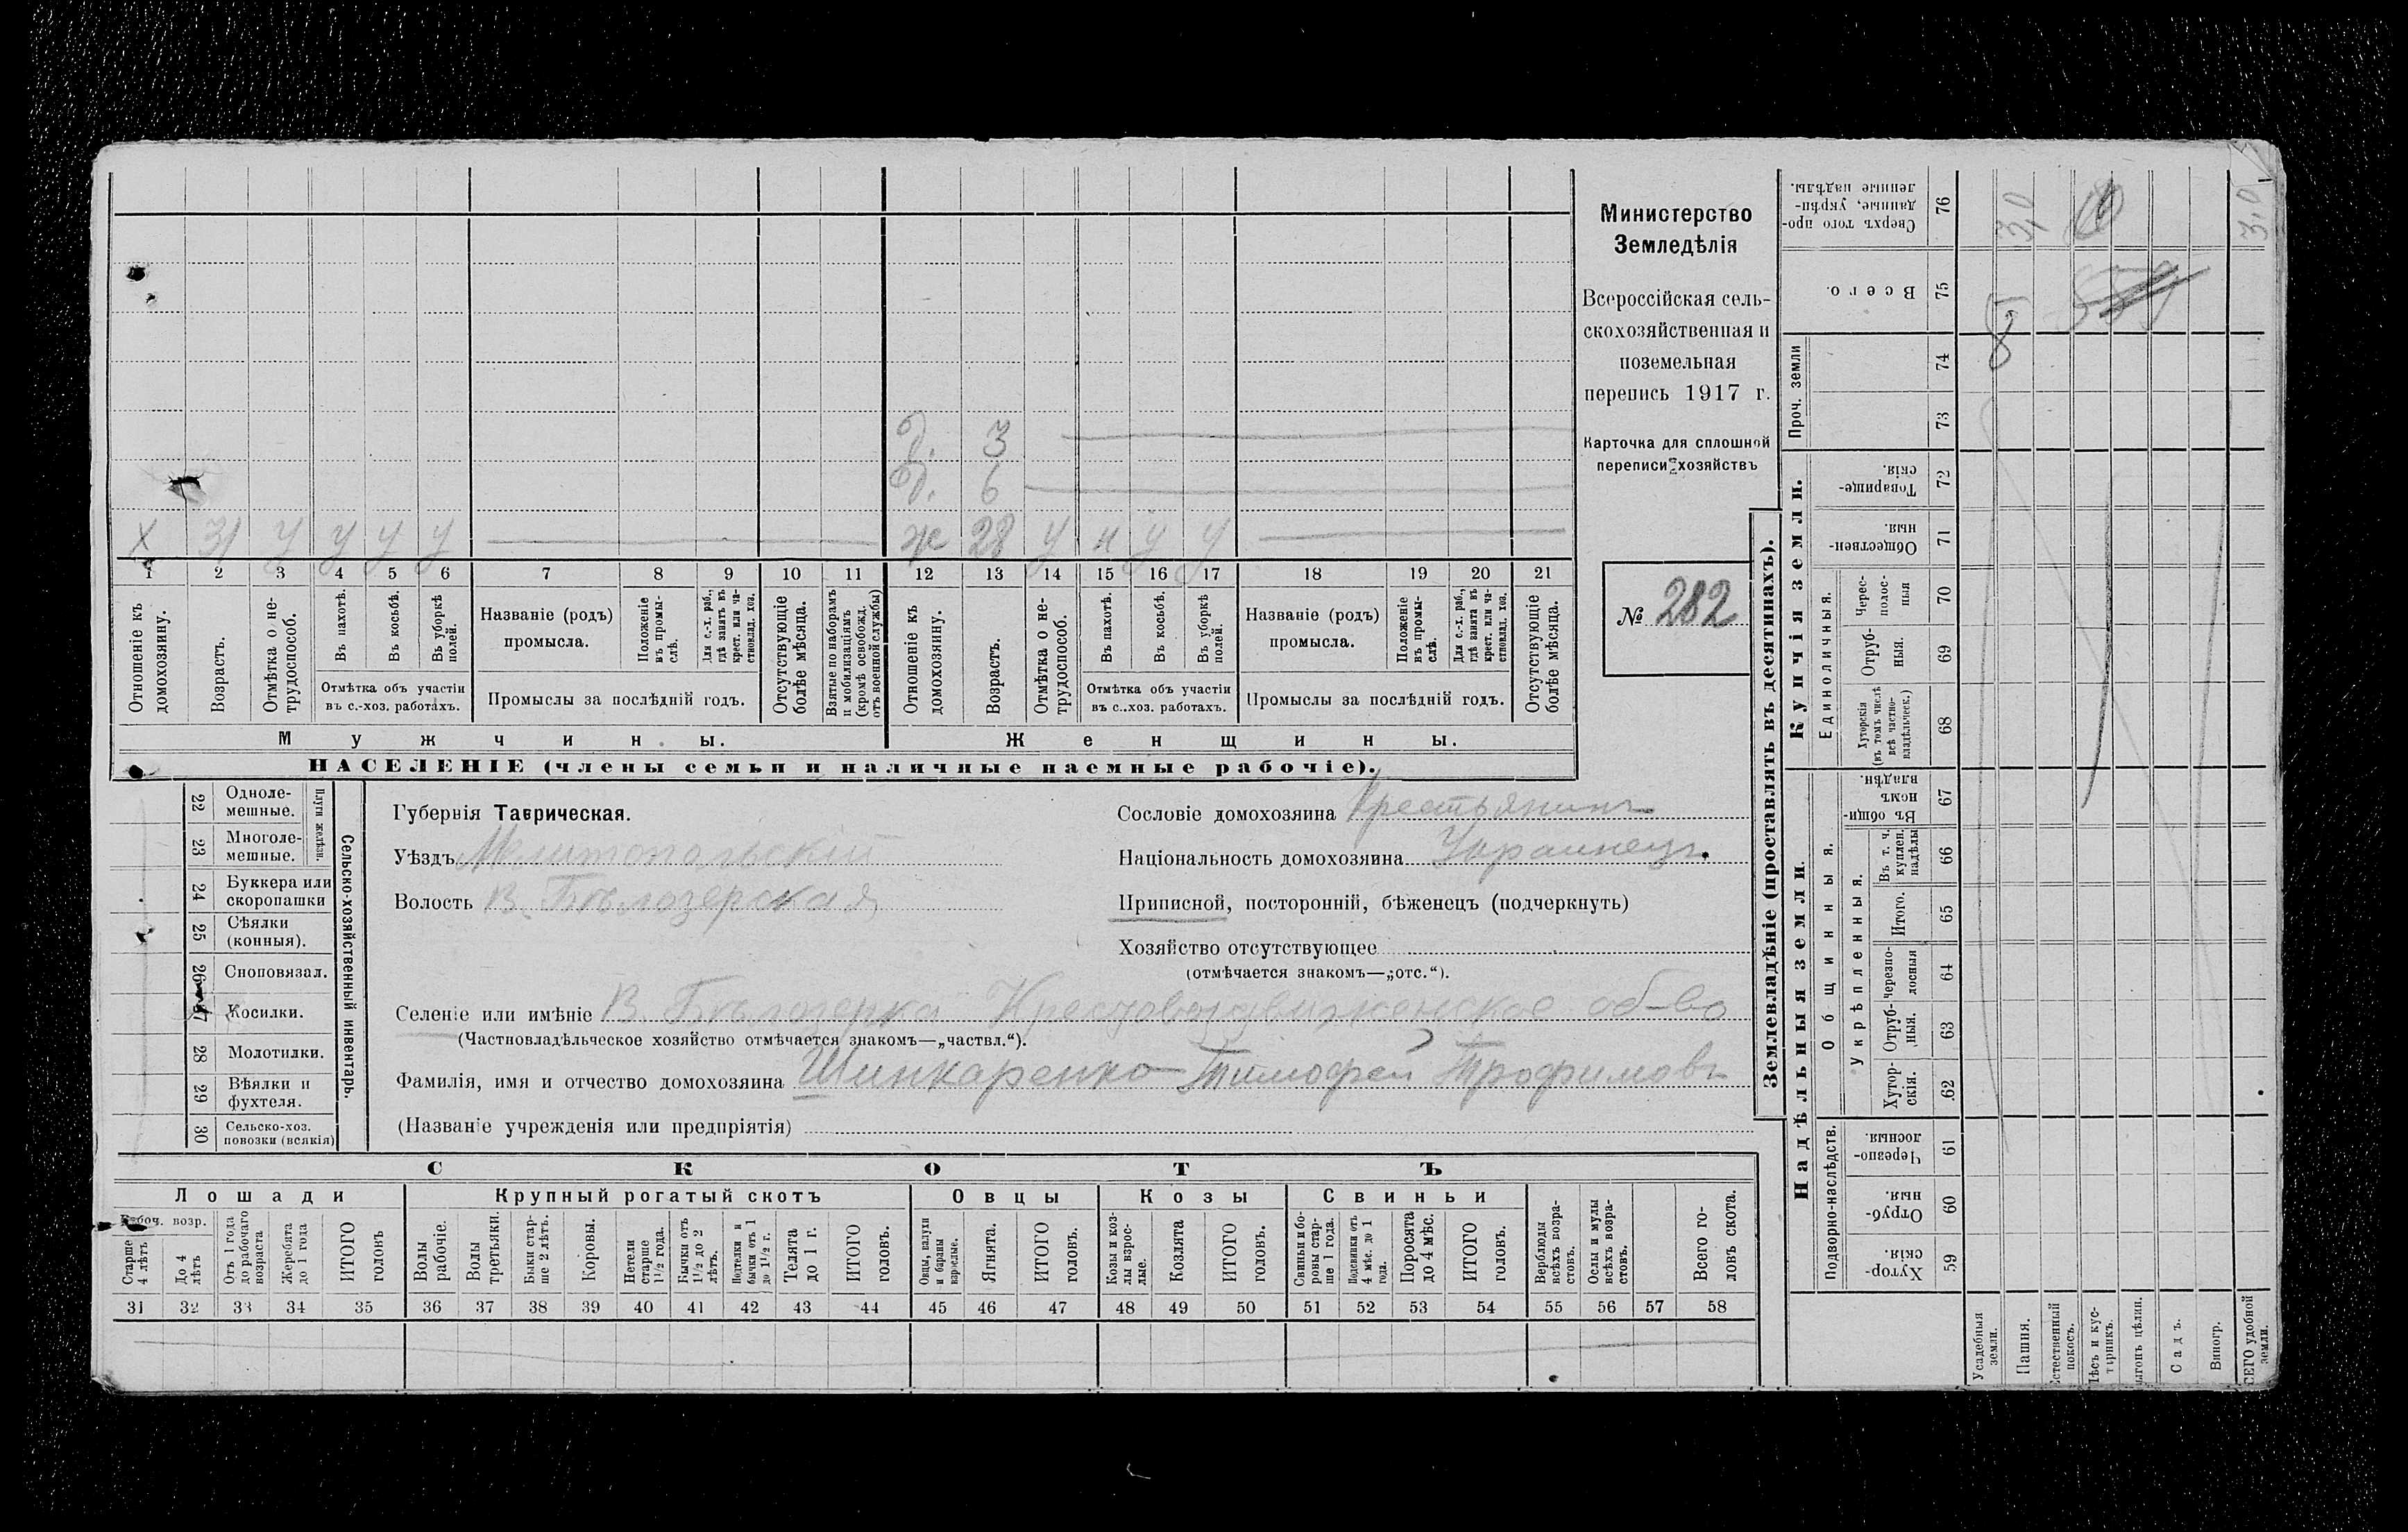 Министерство
Земледѣлія
Всероссійская сель-
скохозяйственная и
поземельная
перепись 1917 г.
Карточка для сплошной
переписи хозяйствъ
№ 282
д. 3
д. 6
х 31 у у у у ж 28 у н у у
1 2 3 4 5 6 7 8 9 10 11 12 13 14 15 16 17 18 19 20 21
Отношеніе къ домохозяину.
Возрастъ.
Отмѣтка о не-трудоспособ.
Въ пахотѣ.
Въ косьбѣ.
Въ уборкѣ полей.
Отмѣтка объ участіи
въ с.-хоз. работахъ.
Названіе (родъ)
промысла.
Положеніе въ промы-слѣ.
Для с.-х. раб., гдѣ занятъ въ крест. или ча-стновлад. хоз.
Промыслы за послѣдній годъ.
Отсутствующіе болѣе мѣсяца.
Взятые по наборамъ и мобилизаціямъ (кромѣ освобожд. отъ военной службы)
Отношеніе къ домохозяину.
Возрастъ.
Отмѣтка о не-трудоспособ.
Въ пахотѣ.
Въ косьбѣ.
Въ уборкѣ полей.
Отмѣтка объ участіи
въ с.-хоз. работахъ.
Названіе (родъ)
промысла.
Положеніе въ промы-слѣ.
Для с.-х. раб., гдѣ занятъ въ крест. или ча-стновлад. хоз.
Промыслы за послѣдній годъ.
Отсутствующіе болѣе мѣсяца.
Мужчины. Женщины.
НАСЕЛЕНІЕ (члены семьи и наличные наемные рабочіе).
Сельско-хозяйственный инвентарь.
Плуги желѣзн.
22 Одноле-мешные.
23 Многоле-мешные.
24 Буккера или скоропашки
25 Сѣялки (конныя).
26 Сноповязал.
27 Косилки.
28 Молотилки.
29 Вѣялки и фухтеля.
30 Сельско-хоз. повозки (всякія)
Губернія Таврическая.
Уѣздъ Мелитопольскій
Волость В. Бѣлозерская
Сословіе домохозяина Крестьянинъ
Національность домохозяина Украинецъ.
Приписной, посторонній, бѣженецъ (подчеркнуть)
Хозяйство отсутствующее
(отмѣчается знакомъ—„отс.“).
Селеніе или имѣніе В. Бѣлозерка Крестовоздвиженское об-во
(Частновладѣльческое хозяйство отмѣчается знакомъ—„частвл.“).
Фамилія, имя и отчество домохозяина Шинкаренко Тимофей Трофимовъ
(Названіе учрежденія или предпріятія)
СКОТЪ
Лошади Крупный рогатый скотъ Овцы Козы Свиньи
Рабоч. возр.
Старше 4 лѣтъ
До 4 лѣтъ
Отъ 1 года до рабочаго возраста
Жеребята до 1 года
ИТОГО головъ
Волы рабочіе.
Волы третьяки.
Быки стар-ше 2 лѣтъ.
Коровы.
Нетели старше 1½ года.
Бычки отъ 1½ до 2 лѣтъ.
Подтелки и бычки отъ 1 до 1½ г.
Телята до 1 г.
ИТОГО головъ.
Овцы, валухи и бараны взрослые.
Ягнята.
ИТОГО головъ.
Козы и коз-лы взрос-лые.
Козлята
ИТОГО головъ.
Свиньи и бо-ровы стар-ше 1 года.
Подсвинки отъ 4 мѣс. до 1 года.
Поросята до 4 мѣс.
ИТОГО головъ.
Верблюды всѣхъ возра-стовъ.
Ослы и мулы всѣхъ возра-стовъ.
Всего го-ловъ скота.
31 32 33 34 35 36 37 38 39 40 41 42 43 44 45 46 47 48 49 50 51 52 53 54 55 56 57 58
Землевладѣніе (проставлять въ десятинахъ).
Надѣльныя земли.
Купчія земли.
Проч. земли
Подворно-наслѣдств.
Общинныя.
Укрѣпленныя.
Единоличныя.
59 Хутор-скія.
60 Отруб-ныя.
61 Черезпо-лосныя.
62 Хутор-скія.
63 Отруб-ныя.
64 Черезпо-лосныя
65 Итого.
66 Въ т. ч. куплен. надѣлы
67 Въ общин-номъ владѣн.
68 Хуторскія (въ томъ числѣ всѣ частно-владѣльческ.)
69 Отруб-ныя.
70 Черес-полос-ныя
71 Обществен-ныя.
72 Товарище-скія.
73
74
75 Всего.
76 Сверхъ того про-данные, укрѣп-ленные надѣлы.
3,0
3,0
Усадебныя земли.
Пашня.
Естественный покосъ.
Лѣсъ и кус-тарникъ.
Выгонъ цѣлин.
Садъ.
Виногр.
ВСЕГО удобной земли.